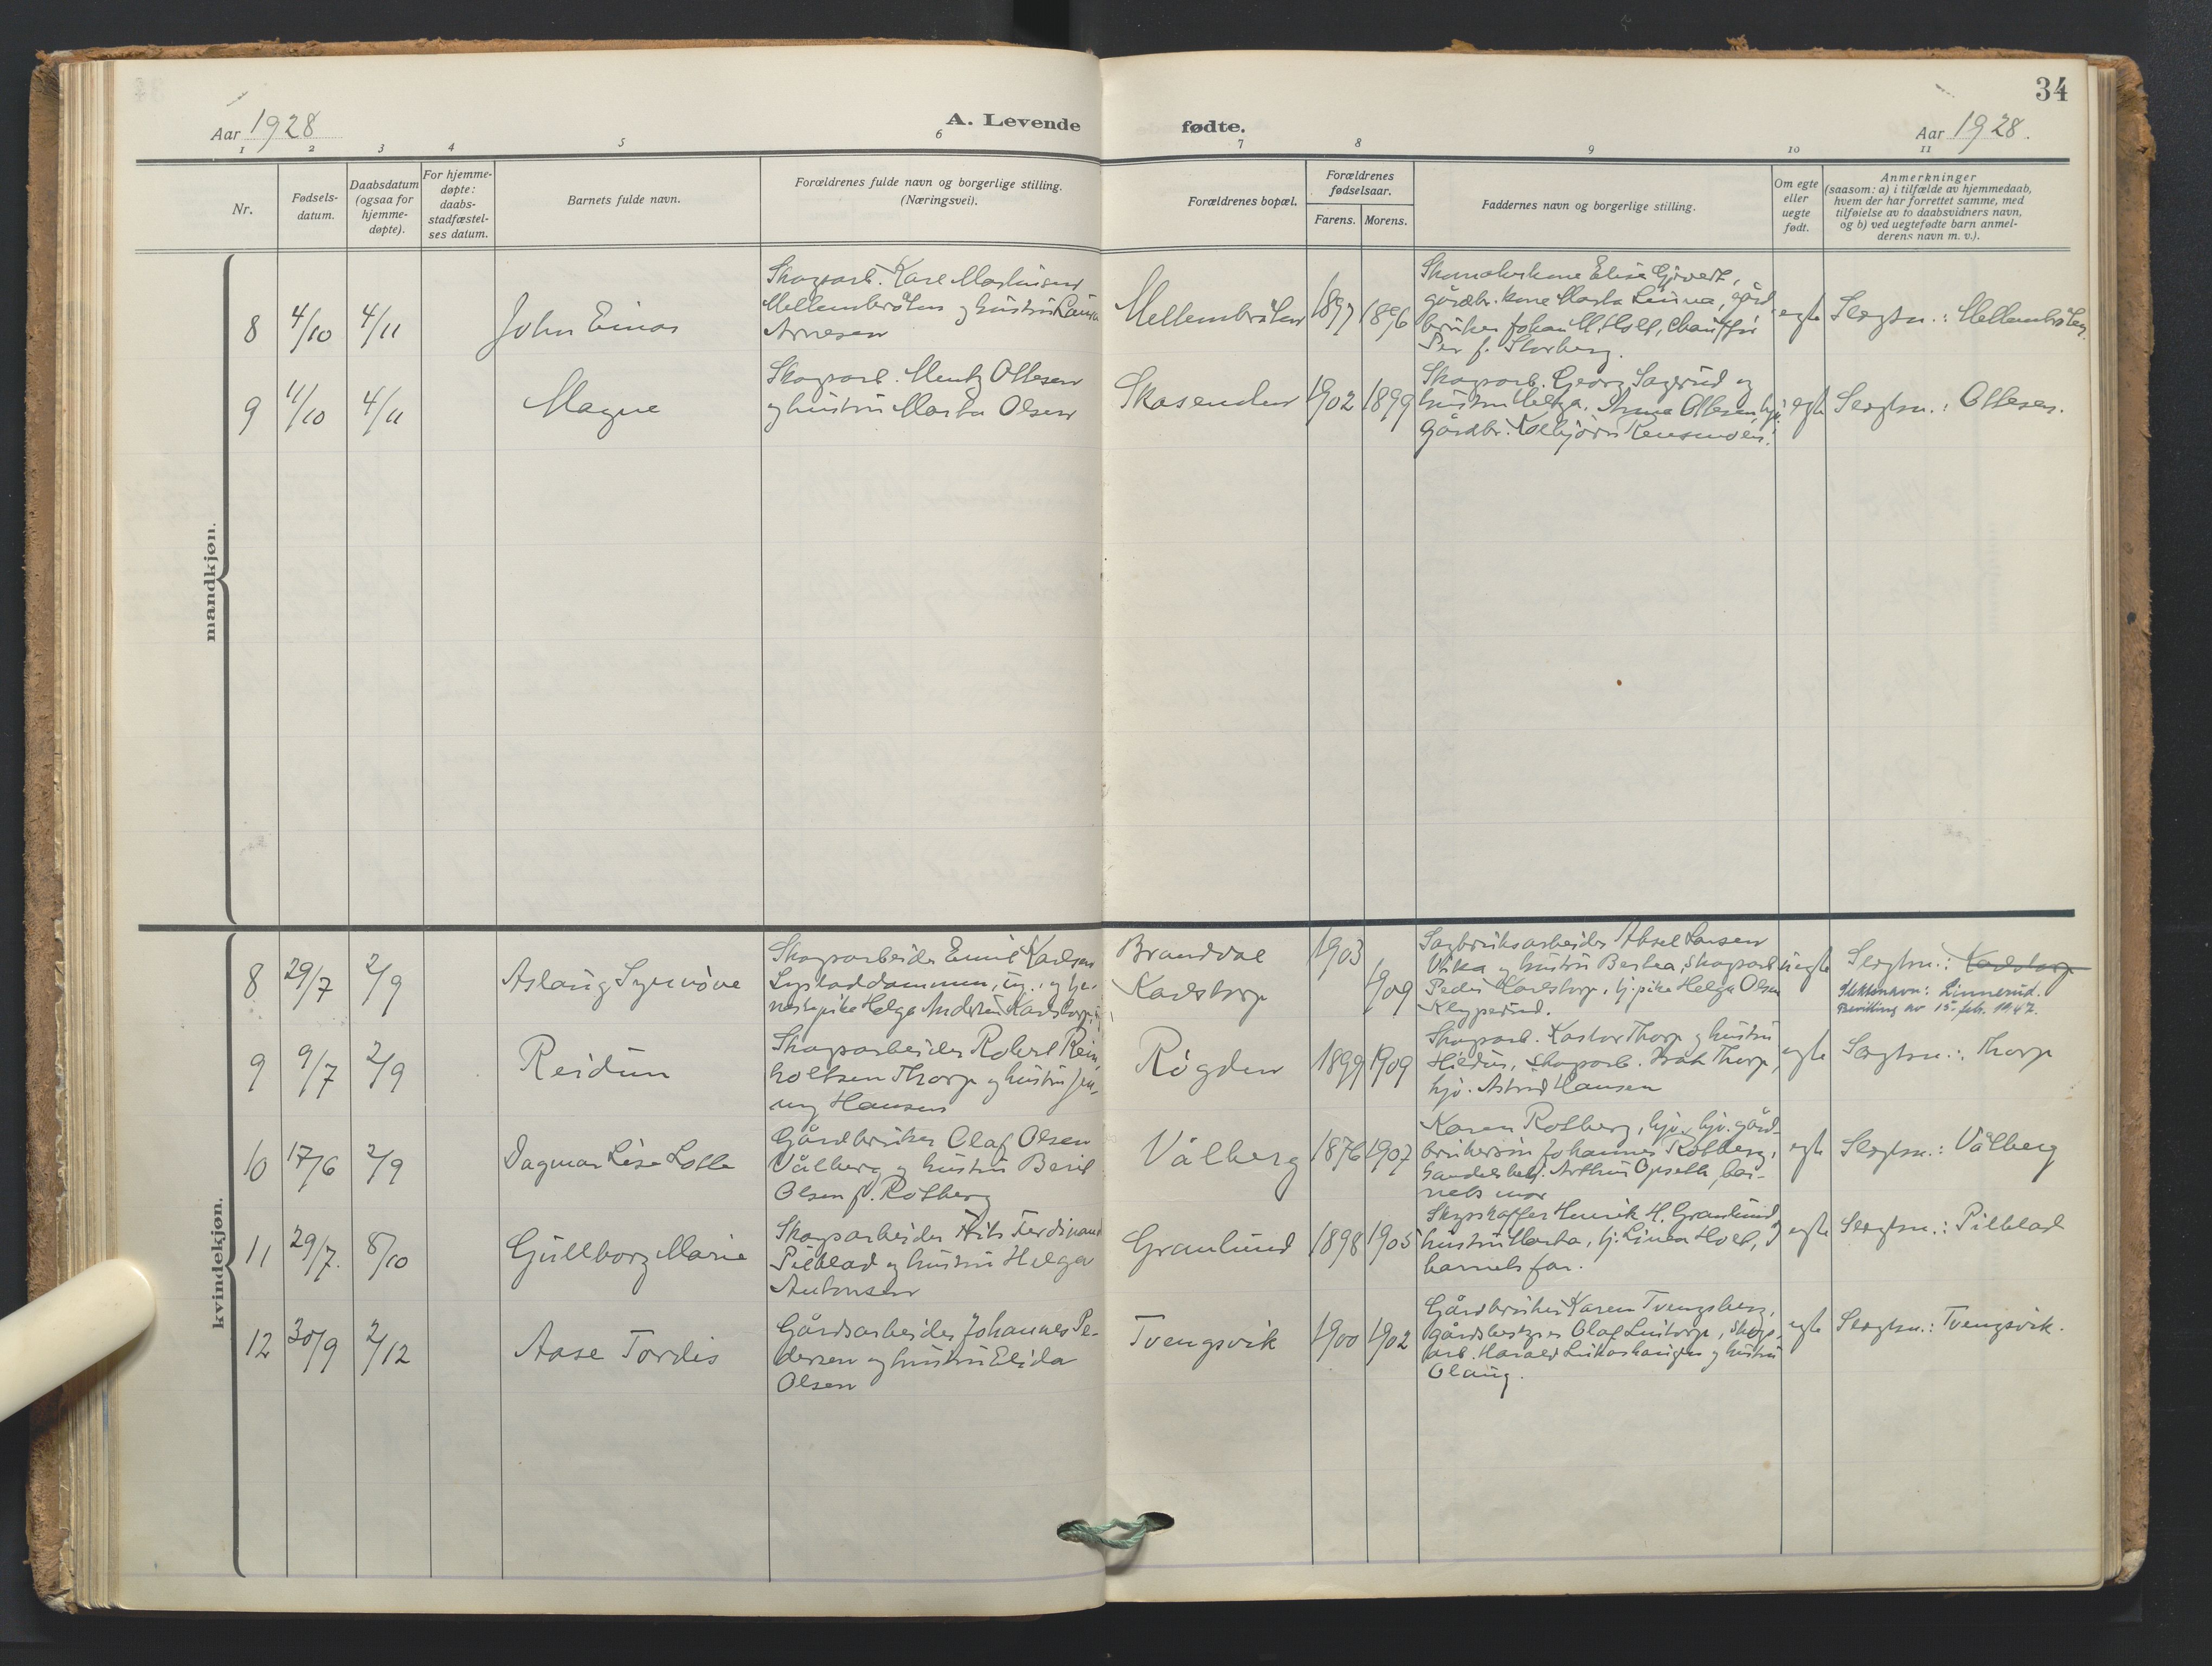 34
Aar 1928
A. Levende
fødte.
Aar 1928.
1 2 3 4 5 6 7 8 9 10 11
Nr.
Fødsels-
datum.
Daabsdatum
(ogsaa for
hjemme-
døpte).
For hjemme-
døpte:
daabs-
stadfæstel-
ses datum.
Barnets fulde navn.
Forældrenes fulde navn og borgerlige stilling.
(Næringsvei).
Forældrenes bopæl.
Forældrenes
fødselsaar.
Farens. Morens.
Faddernes navn og borgerlige stilling.
Om egte
eller
uegte
født.
Anmerkninger
(saasom: a) i tilfælde av hjemmedaab,
hvem der har forrettet samme, med
tilføielse av to daabsvidners navn,
og b) ved uegtefødte barn anmel-
derens navn m. v.).
mandkjøn.
8 4/10 4/11
John Einar
Skogarb. Karl Martinsen
Mellembråten og hustru Laura
Arnesen
Mellembråten
1897 1896
Elise
gårdbr. kone Marta Linna, gård
bruker Johan M. Holt, chauffør
Per J. Storberg.
egte
Slegtsn.: Mellembråten
9 11/10 4/11
Magne
Skogarb. Mentz Ottesen
og hustru Marta Olsen
Skasenden
1902 1899
Skogarb. Georg Sagerud og
hustru Helga, Ottesen,
gårdbr. Kolbjørn
egte
Slegtsn.: Ottesen.
kvindekjøn.
8 29/7 2/9
Aslaug Synnøve
Skogarbeider Emil Karlsen
ug., og tje-
nestepike Helga Andersen Karlstorp,
Brandval
Karlstorp
1903
1909
Sagbruksarbeider Aksel Larsen
Vika og hustru Bertea, skogarb.
Peder Karlstorp, tj. pike Helga Olsen
Klypperud.
uegte
Slegtsn.: Karlstorp
Slektsnavn: Linnerud.
Bevilling av 15. feb. 1947.
9 9/7 2/9
Reidun
Skogarbeider Robert Rein
holtsen Thorp og hustru Jen-
ny Hansen
Røgden
1899 1909
Skogarb. Kastor Thorp og hustru
Hildur, skogarb. Isak Thorp,
hjv. Astrid Hansen
egte
Slegtsn.: Thorp
10 17/6 2/9
Dagmar Lise Lotte
Gårdbruker Olaf Olsen
Vålberg og hustru Beril
Olsen f. Rotberg
Vålberg
1876 1907
Karen Rotberg, hjv., gård-
brukersøn Johannes Rotberg,
handelsbetj. Arthur Opseth, bar-
nets mor
egte
Slegtsn.: Vålberg
11 29/7. 8/10
Gullborg Marie
Skogarbeider Nils Ferdinand
Pilblad og hustru Helga
Antonsen
Granlund
1898 1905
Skysskaffer Henrik H. Granlund,
hustru Marta, tj. Linea Holt,
barnets far.
egte
Slegtsn.: Pilblad
12 30/9 2/12
Aase Tordis
Gårdsarbeider Johannes Pe-
dersen og hustru Elida
Olsen
Tvengsvik
1900 1902
Gårdbruker Karen Tvengsberg,
gårdbestyrer Olaf Lintorp, skogs-
arb. Harald Linkashaugen og hustru
Olaug.
egte
Slegtsn.: Tvengsvik.